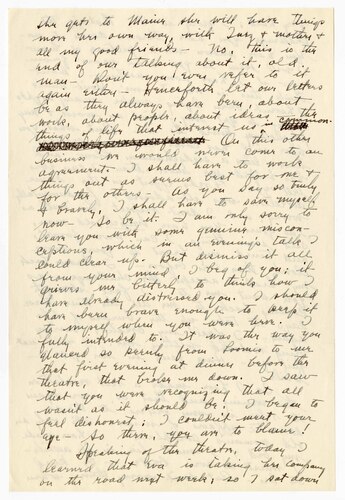 she gets to Maine she will have things
more her own way, with Lucy & mother &
all my good friends — No, this is the
end of our talking about it, old
man — Don't you ever refer to it
again either — Henceforth let our letters
be as they always have been, about
work, about people, about ideas, the common
things of life that interest us.
On this other
business we would never come to an
agreement. I shall have to work
things out as seems best for me &
for the others — As you say so truly,
& bravely, I shall have to save myself
now — So be it. I am only sorry to
leave you with some genuine miscon-
ceptions, which in an evening's talk I
could clear up. But dismiss it all
from your mind, I beg of you; it
grieves me bitterly to think how I
have already distressed you. I should
have been brave enough to keep it
to myself when you were here. I
fully intended to. It was the way you
glanced so keenly from Loomis to me
that first evening at dinner before the
theatre, that broke me down. I saw
that you were recognizing that all
wasn't as it should be. I began to
feel dishonest; I couldn't meet your
eye — So there, you are to blame!
Speaking of the theatre, today I
learned that Eva is taking her company
on the road next week, so I sat down